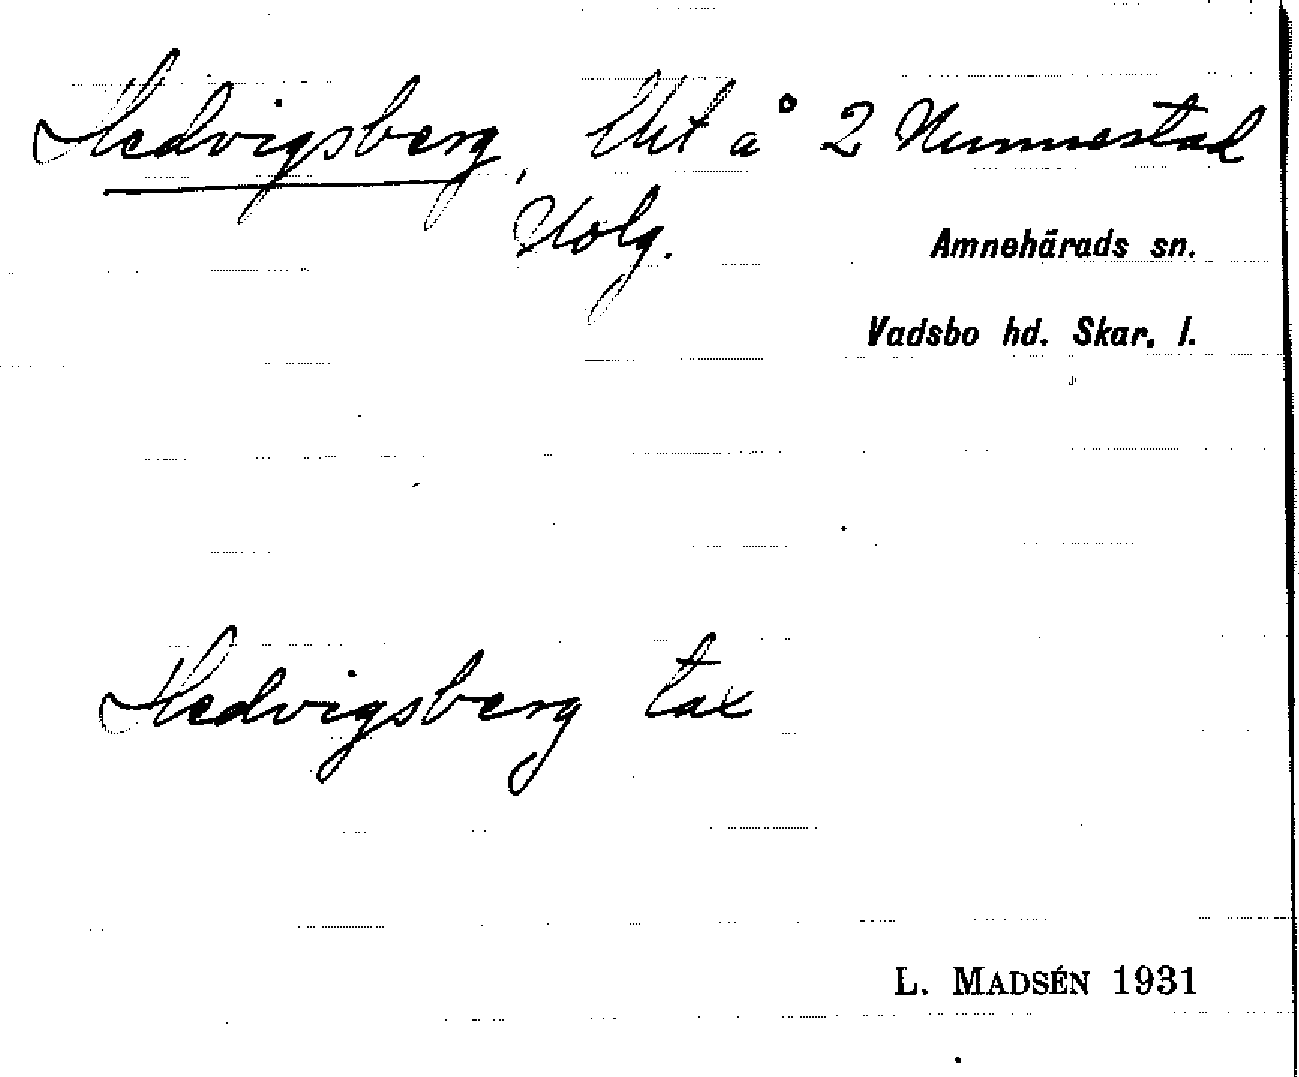 Hedvigsberg, Lht å 2 Nunnestad
Nolg.
Amnehärads sn.
Vadsbo hd. Skar. l.
Hedvigsberg tax
L. MADSÉN 1931